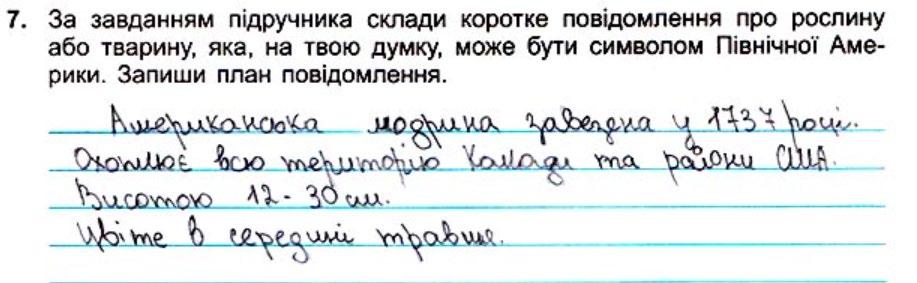 7. За завданням підручника склади коротке повідомлення про рослину
або тварину, яка, на твою думку, може бути символом Північної Аме-
рики. Запиши план повідомлення.
Американська модрина завезена у 1737 році.
Охоплює всю територію Канади та райони США.
Висотою 12-30 см.
Цвіте в середині травня.